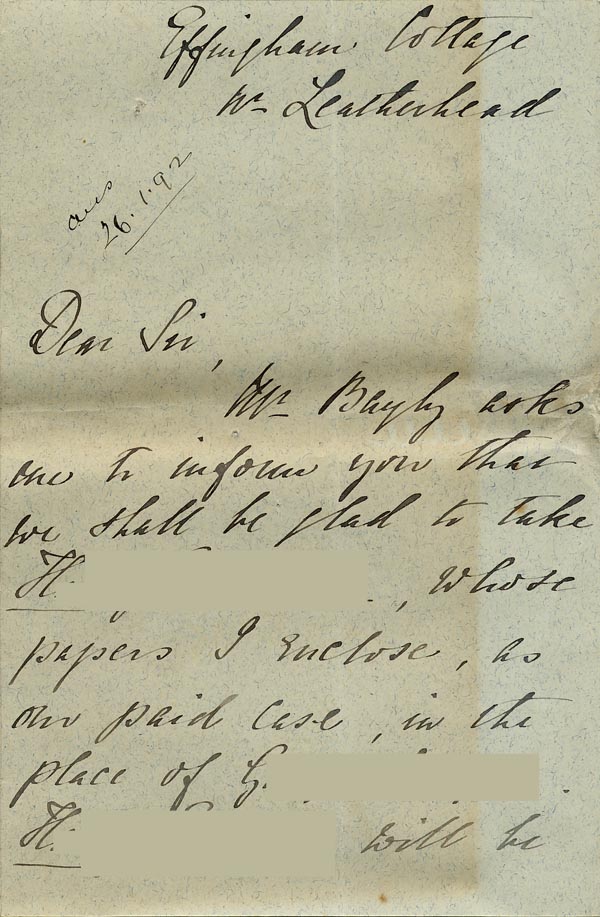 Effingham Cottage
Nr Leatherhead
ans
26.1.92
Dear Sir,
Mr Bayly asks
me to inform you that
we shall be glad to take
H. , whose
papers I enclose, as
our paid case, in the
place of G. .
H. will be